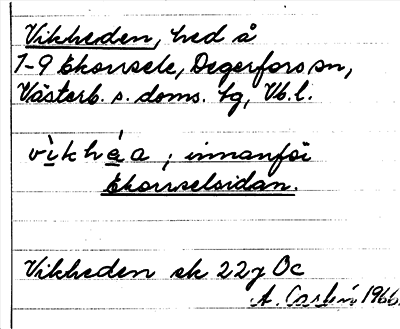 Vikheden, hed å
1-9 Ekorrsele, Degerfors sn,
Västerb. s. doms. tg, Vb. l.
vìkhéa; innanför
Ekorrselsidan.
Vikheden ek 22y Öc
A. 1966.